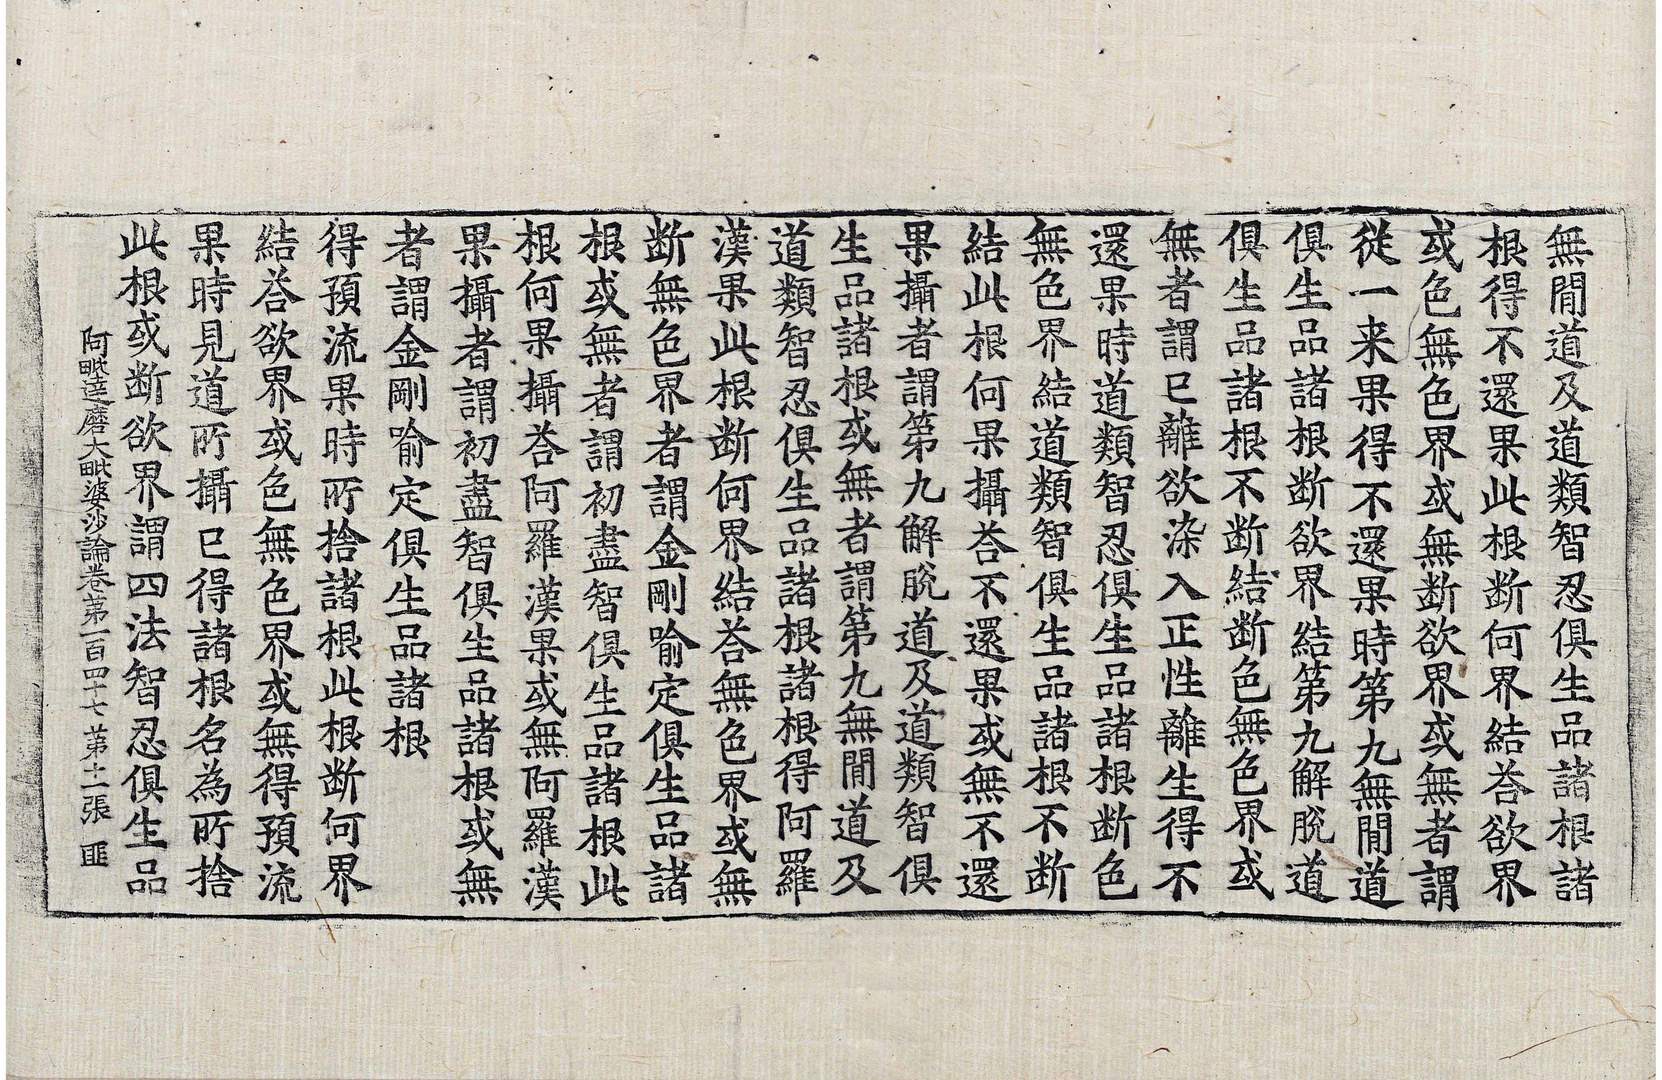 無閒道及道類智忍俱生品諸根諸
根得不還果此根断何界結荅欲界
或色無色界或無断欲界或無者謂
從一来果得不還果時第九無閒道
俱生品諸根断欲界結第九解脫道
俱生品諸根不断結断色無色界或
無者謂已離欲染入正性離生得不
還果時道類智忍俱生品諸根断色
無色界結道類智俱生品諸根不断
結此根何果攝荅不還果或無不還
果攝者謂第九解脫道及道類智俱
生品諸根或無者謂第九無閒道及
道類智忍俱生品諸根諸根得阿羅
漢果此根断何界結荅無色界或無
断無色界者謂金剛喻定俱生品諸
根或無者謂初盡智俱生品諸根此
根何果攝荅阿羅漢果或無阿羅漢
果攝者謂初盡智俱生品諸根或無
者謂金剛喻定俱生品諸根
得預流果時所捨諸根此根断何界
結荅欲界或色無色界或無得預流
果時見道所攝已得諸根名為所捨
此根或断欲界謂四法智忍俱生品
阿毗達磨大毗婆沙論卷第一百四十七 第十二張 匪